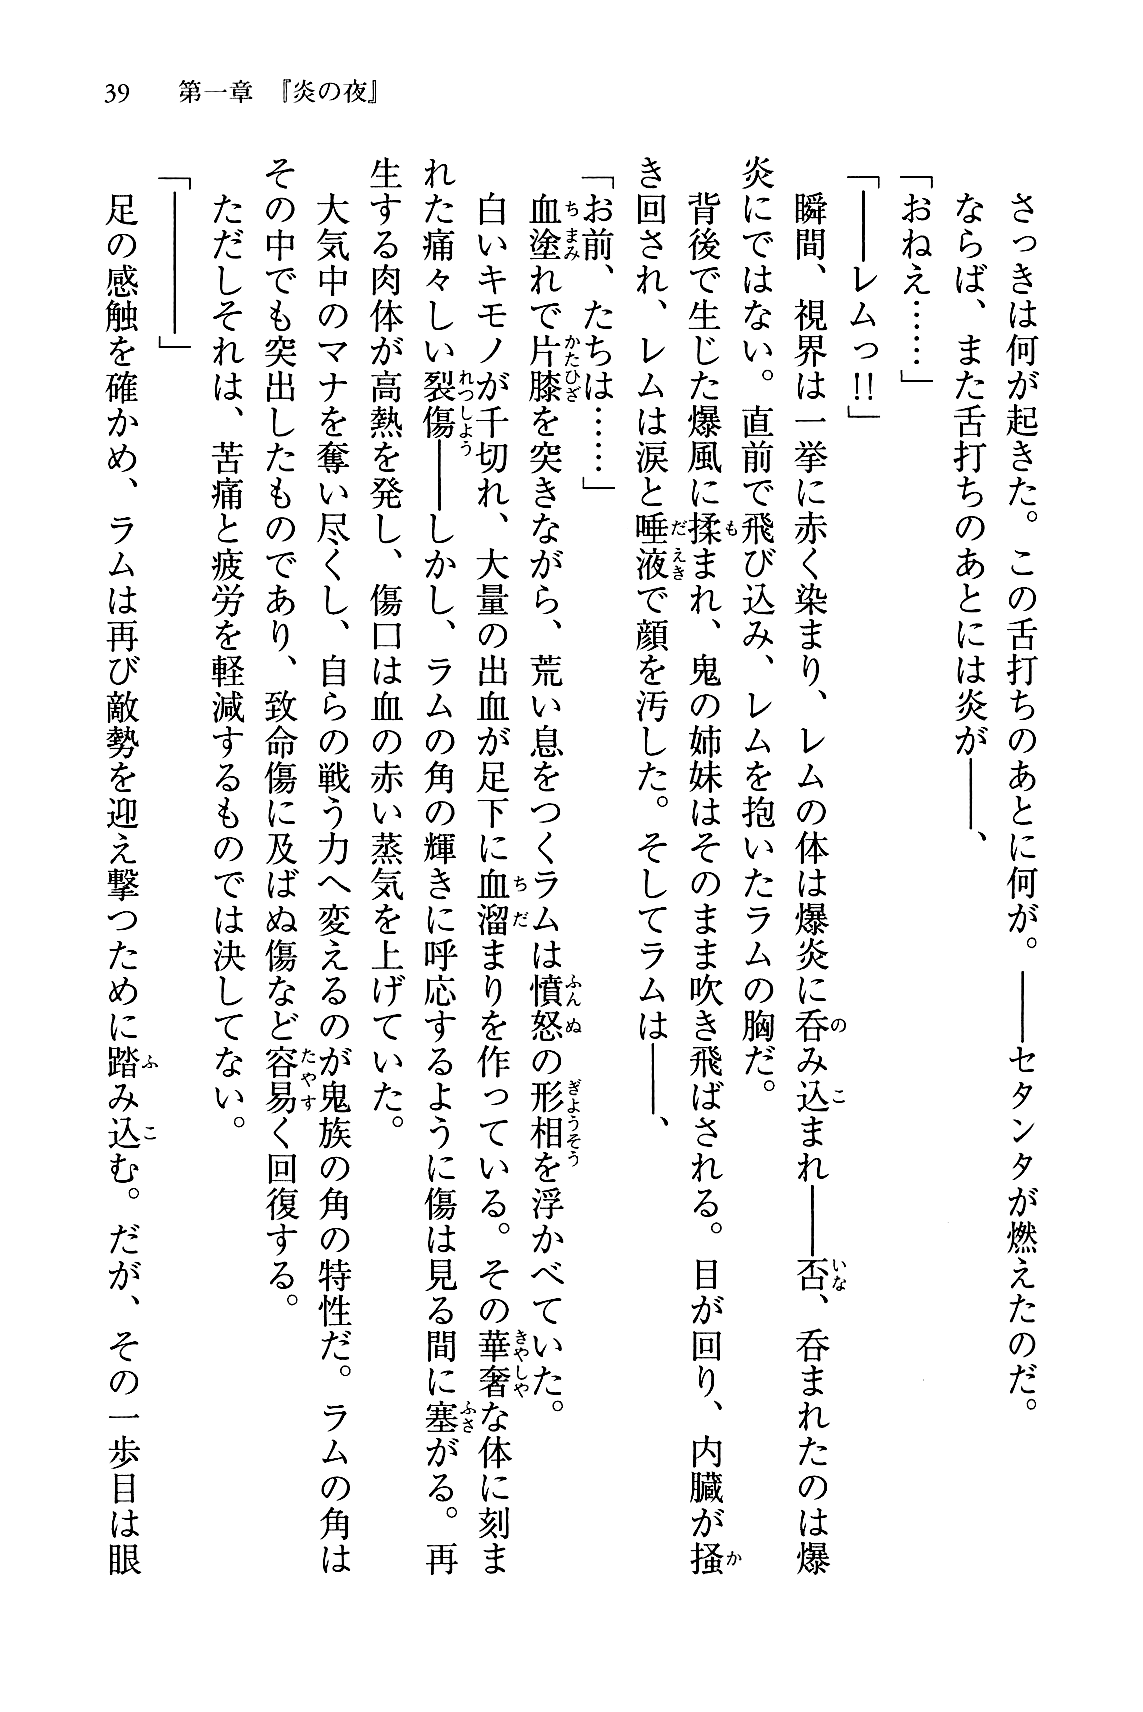 39　第一章　『炎の夜』
さっきは何が起きた。この舌打ちのあとに何が。――セタンタが燃えたのだ。
ならば、また舌打ちのあとには炎が――、
「おねえ……」
「――レムっ!!」
瞬間、視界は一挙に赤く染まり、レムの体は爆炎に呑み込まれ――否、呑まれたのは爆
炎にではない。直前で飛び込み、レムを抱いたラムの胸だ。
背後で生じた爆風に揉まれ、鬼の姉妹はそのまま吹き飛ばされる。目が回り、内臓が掻
き回され、レムは涙と唾液で顔を汚した。そしてラムは――、
「お前、たちは……」
血塗れで片膝を突きながら、荒い息をつくラムは憤怒の形相を浮かべていた。
白いキモノが千切れ、大量の出血が足下に血溜まりを作っている。その華奢な体に刻ま
れた痛々しい裂傷――しかし、ラムの角の輝きに呼応するように傷は見る間に塞がる。再
生する肉体が高熱を発し、傷口は血の赤い蒸気を上げていた。
大気中のマナを奪い尽くし、自らの戦う力へ変えるのが鬼族の角の特性だ。ラムの角は
その中でも突出したものであり、致命傷に及ばぬ傷など容易く回復する。
ただしそれは、苦痛と疲労を軽減するものでは決してない。
「――――」
足の感触を確かめ、ラムは再び敵勢を迎え撃つために踏み込む。だが、その一歩目は眼